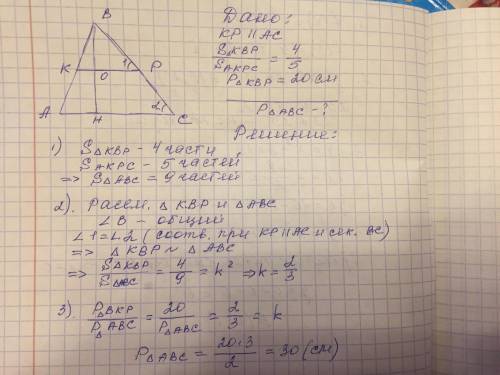 B
K 1 P
O
A H 2 C
Дано:
KP || AC
SΔKBP / SAKPC = 4/5
PΔKBP = 20 см
PΔABC - ?
Решение:
1) SΔKBP - 4 части
SAKPC - 5 частей
=> SΔABC = 9 частей
2). Рассм. Δ KBP и Δ ABC
∠B - общий
∠1 = ∠2 (соотв. при KP || AC и сек. BC)
=> Δ KBP ~ Δ ABC
=> SΔKBP / SΔABC = 4/9 = k² => k = 2/3
3) PΔBKP / PΔABC = 20 / PΔABC = 2/3 = k
PΔABC = 20·3 / 2 = 30 (см)